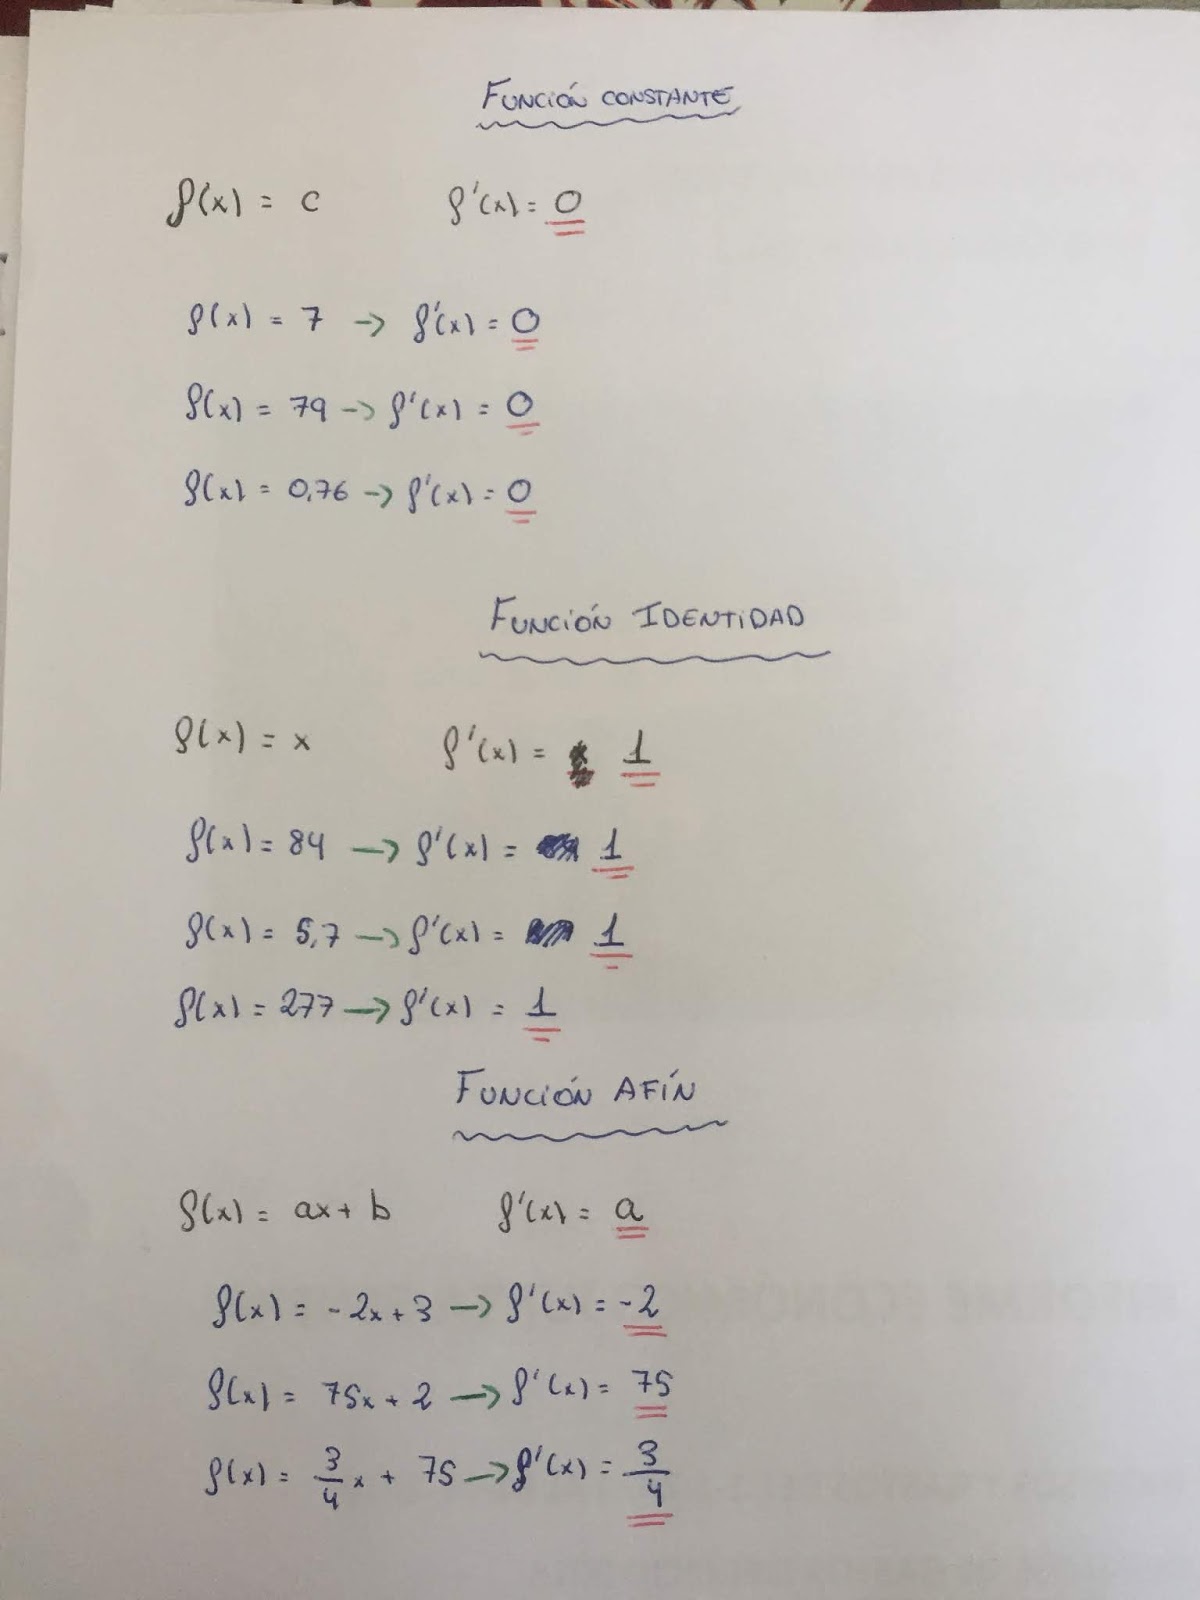 FUNCIÓN CONSTANTE
f(x) = c f'(x) = 0
f(x) = 7 → f'(x) = 0
f(x) = 79 → f'(x) = 0
f(x) = 0,76 → f'(x) = 0
FUNCIÓN IDENTIDAD
f(x) = x f'(x) = 1
f(x) = 84 → f'(x) = 1
f(x) = 5,7 → f'(x) = 1
f(x) = 277 → f'(x) = 1
FUNCIÓN AFÍN
f(x) = ax + b f'(x) = a
f(x) = -2x + 3 → f'(x) = -2
f(x) = 75x + 2 → f'(x) = 75
f(x) = 3/4 x + 75 → f'(x) = 3/4